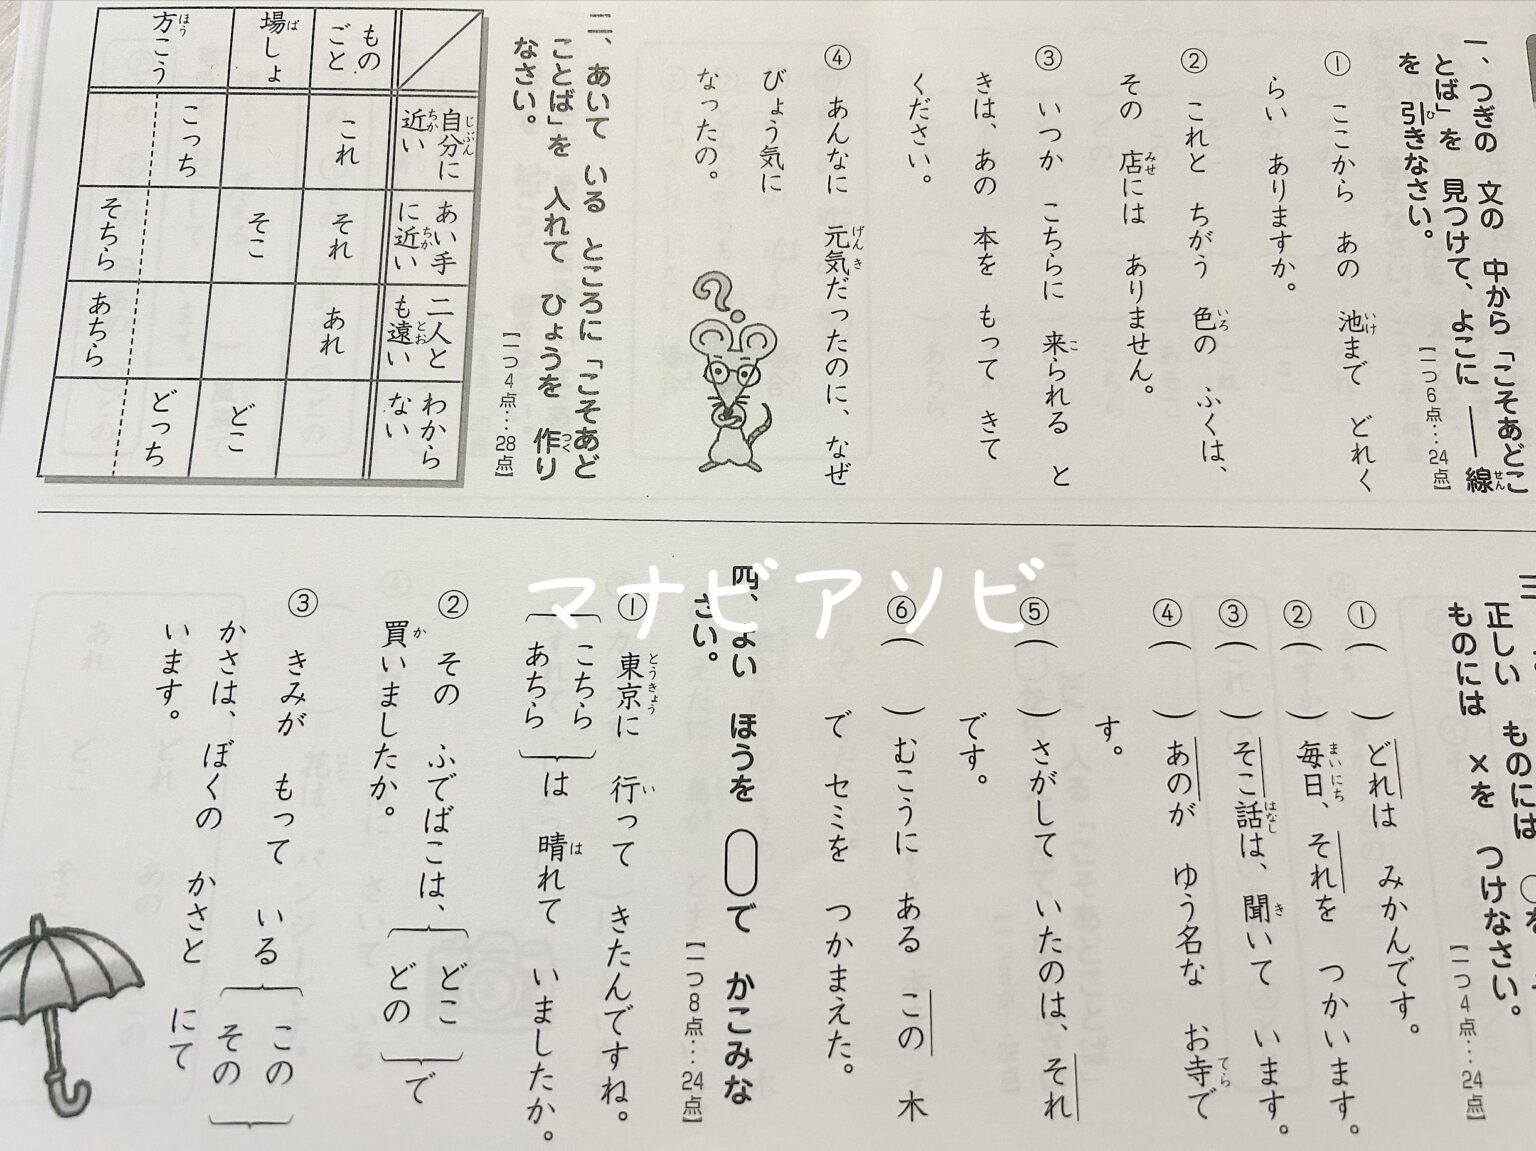 一、つぎの 文の 中から「こそあどこ
とば」を 見つけて、よこに ――線
を 引きなさい。
【一つ6点…24点】
① ここから あの 池まで どれく
らい ありますか。
② これと ちがう 色の ふくは、
その 店には ありません。
③ いつか こちらに 来られる と
きは、あの 本を もって きて
ください。
④ あんなに 元気だったのに、なぜ
びょう気に
なったの。
二、あいて いる ところに「こそあど
ことば」を 入れて ひょうを 作り
なさい。
【一つ4点…28点】
自分に
近い
あい手
に近い
二人と
も遠い
わから
ない
もの
ごと
これ
それ
あれ
場しょ
そこ
どこ
方こう
こっち
どっち
そちら
あちら
正しい ものには
ものには ×を つけなさい。
【一つ4点…24点】
①( )どれは みかんです。
②( )毎日、それを つかいます。
③( )そこ話は、聞いて います。
④( )あのが ゆう名な お寺で
す。
⑤( )さがして いたのは、それ
です。
⑥( )むこうに ある この 木
で セミを つかまえた。
四、よい ほうを ◯で かこみな
さい。
【一つ8点…24点】
① 東京に 行って きたんですね。
{こちら あちら}は 晴れて いましたか。
② その ふでばこは、{どこ どの}で
買いましたか。
③ きみが もって いる{この その}
かさは、ぼくの かさと にて
います。
マナビアソビ